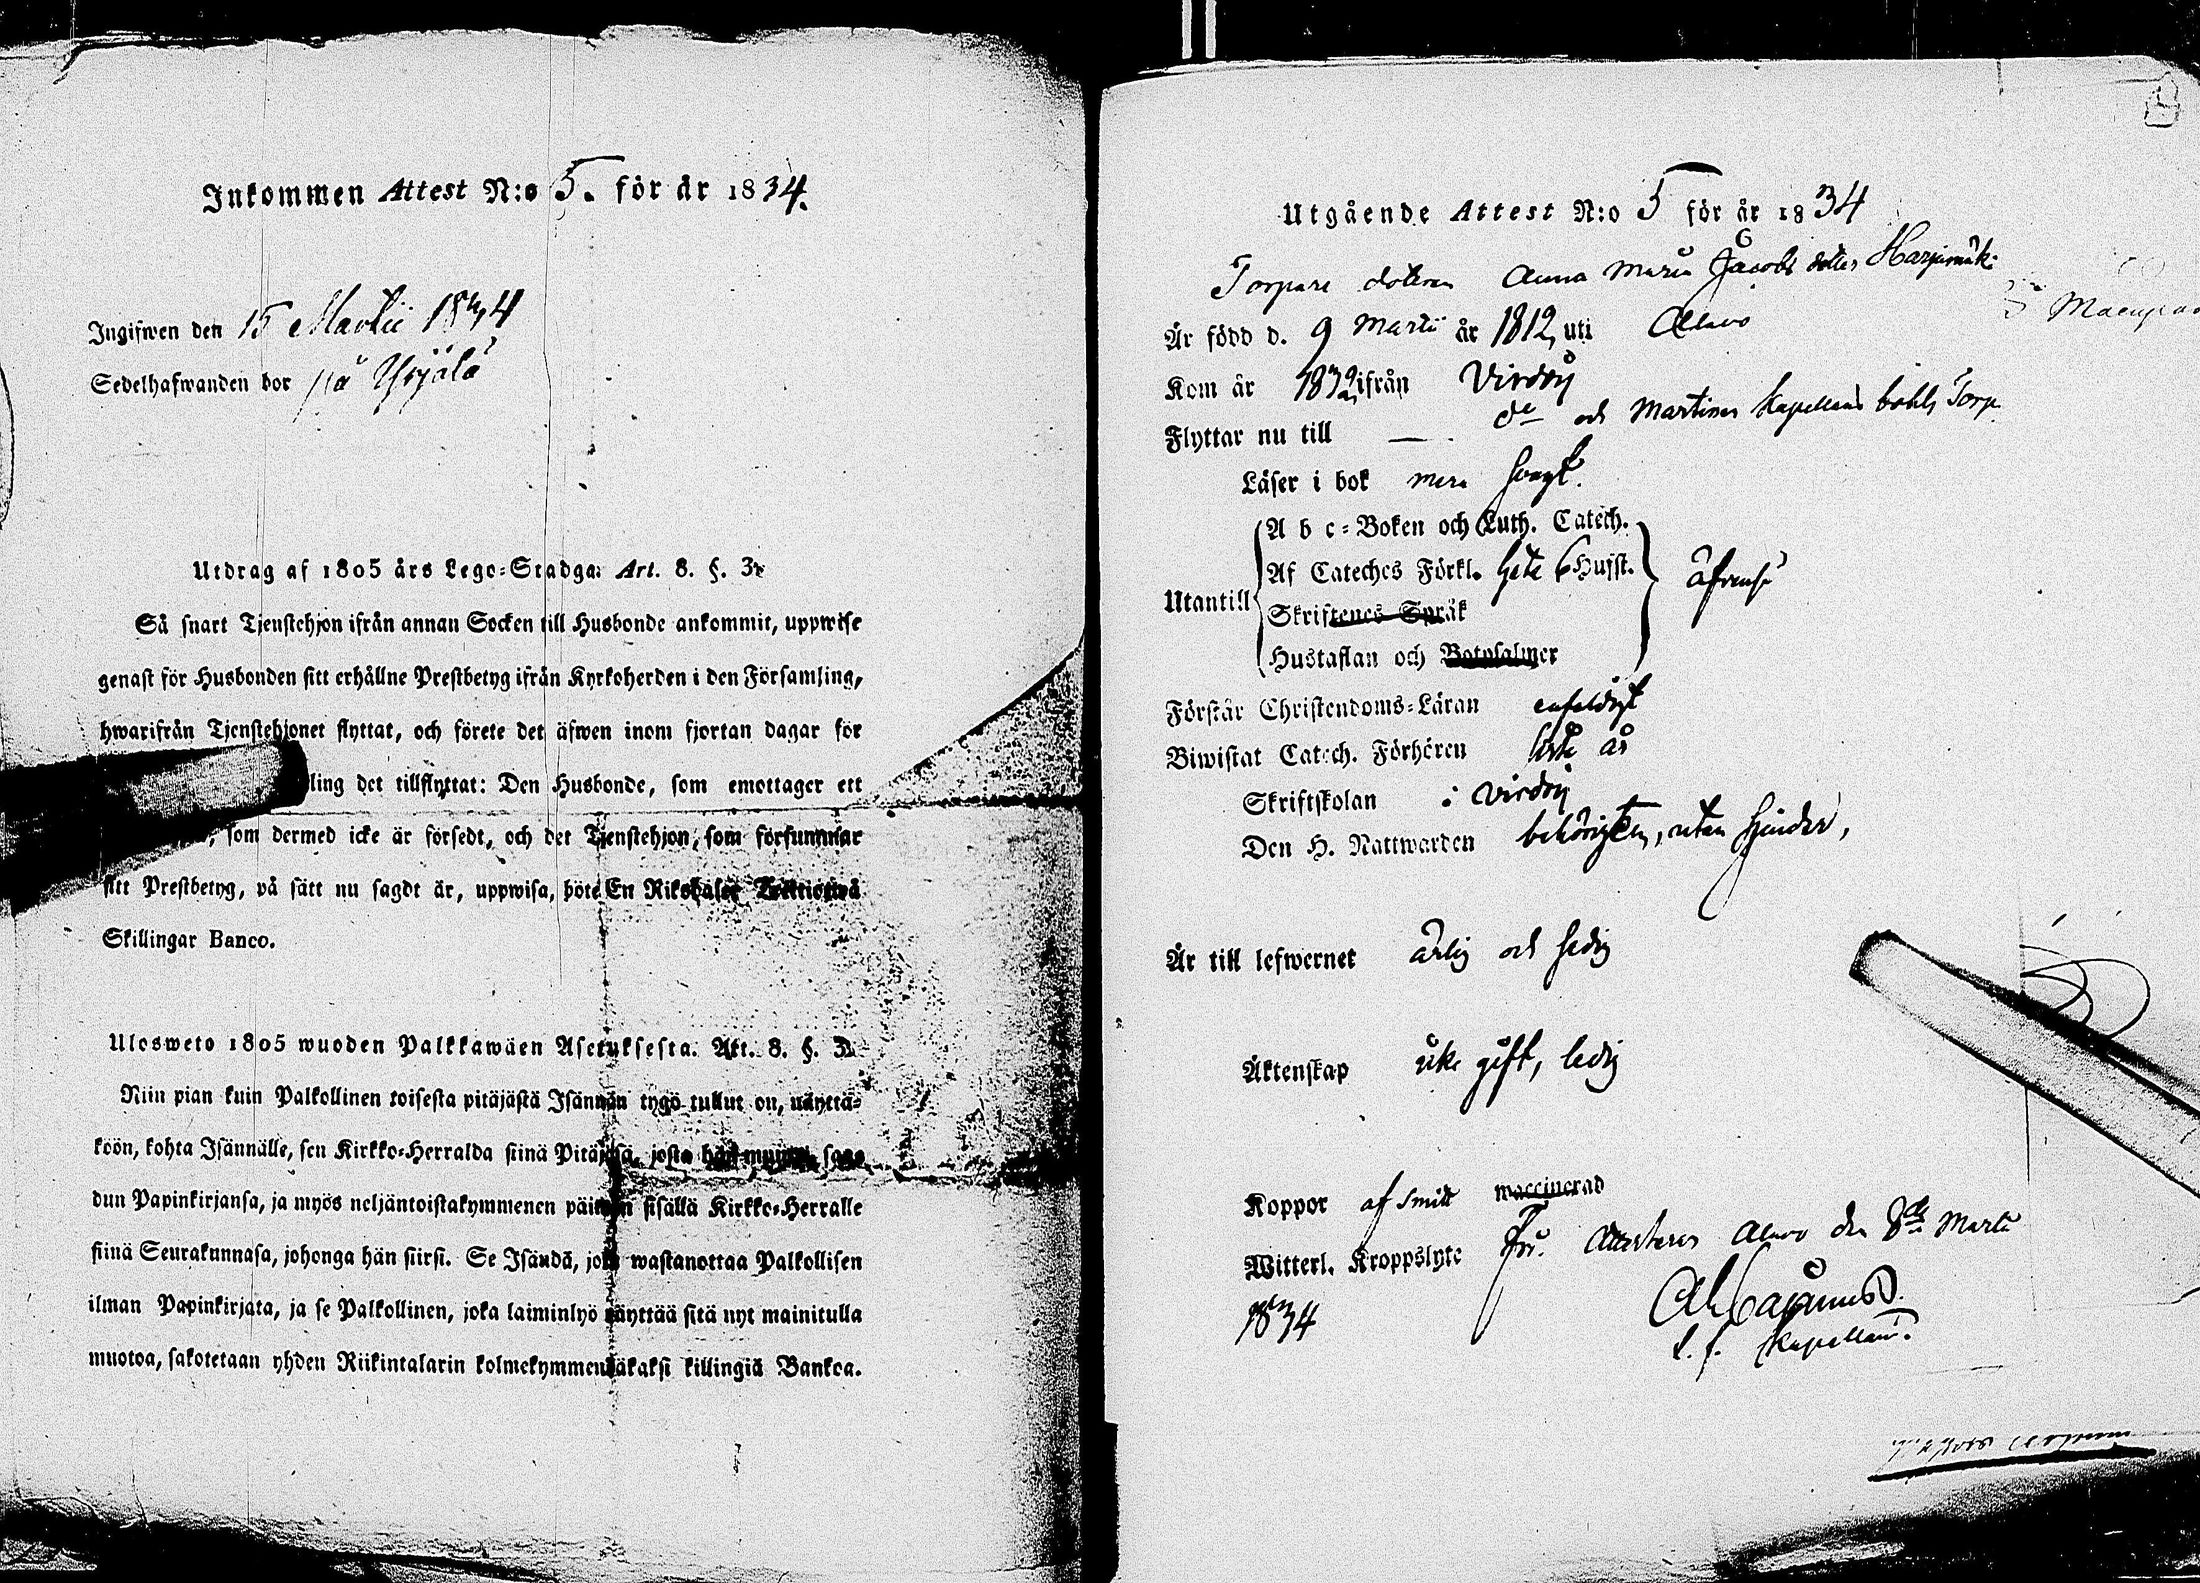 Inkommen Attest N:o 5. för år 1834.
Ingifwen den 15 Martii 1834
Sedelhafwanden bor på Yrjälä
Utdrag af 1805 års Lego-Stadga. Art. 8. §. 3.
Så snart Tjenstehjon ifrån annan Socken till Husbonde ankommit, uppwise
genast för Husbonden sitt erhållne Prestbetyg ifrån Kyrkoherden i den Församling,
hwarifrån Tjenstehjonet flyttat, och förete det äfwen inom fjortan dagar för
ling det tillflyttat: Den Husbonde, som emottager ett
, som dermed icke är försedt, och det Tjenstehjon, som försummar
sitt Prestbetyg, på sätt nu sagdt är, uppwisa, böte En Riksdaler
Skillingar Banco.
Ulosweto 1805 wuoden Palkkawäen Asetuksesta. Att. 8. §. 3.
Niin pian kuin Palkollinen toisesta pitäjästä Isännän tygö tullut on, näyttä-
köön, kohta Isännälle, sen Kirkko-Herralda siinä Pitäjäsä, josta hän muutti, saa-
dun Papinkirjansa, ja myös neljäntoistakymmenen päiwän sisällä Kirkko-Herralle
siinä Seurakunnasa, johonga hän siirsi. Se Isändä, joka wastanottaa Palkollisen
ilman Papinkirjata, ja se Palkollinen, joka laiminlyö näyttää sitä nyt mainitulla
muotoa, sakotetaan yhden Riikintalarin kolmekymmendäkaksi killingiä Bankoa.
Utgående Attest N:o 5 för år 1834
Torpare dottren Anna Maria Jacobs dotter Harjumäki
Är född d. 9 Martii år 1812, uti Alavo
Kom år 1832 ifrån Virdois
Flyttar nu till — do och Martinen Kapellans bohls Torp.
Läser i bok mera svagt.
A b c-Boken och Luth. Catech.
Af Cateches Förkl. Hufst.
Utantill
Skriftenes Språk
Hustaflan och Botpsalmer
Förstår Christendoms-Läran enfaldigt
Biwistat Catech. Förhören sista år
Skriftskolan i Virdois
Den H. Nattwarden behörigen, utan hinder,
Är till lefwernet ärlig och sedig
Äktenskap icke gift, ledig
Koppor af Smitt waccinerad
Witterl. Kroppslyte Fri. Attesteras Alavo den 8de Martii
1834
Kapellan.